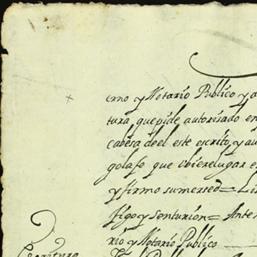 erno y Notario Publico y a
tura, que pide autorisado en
cabesa deel este escrito, y au
golase que obiere lugar e
y firmo su merced = Li
tigo y senturion = Ante
rio y Notario Publico
Escritura